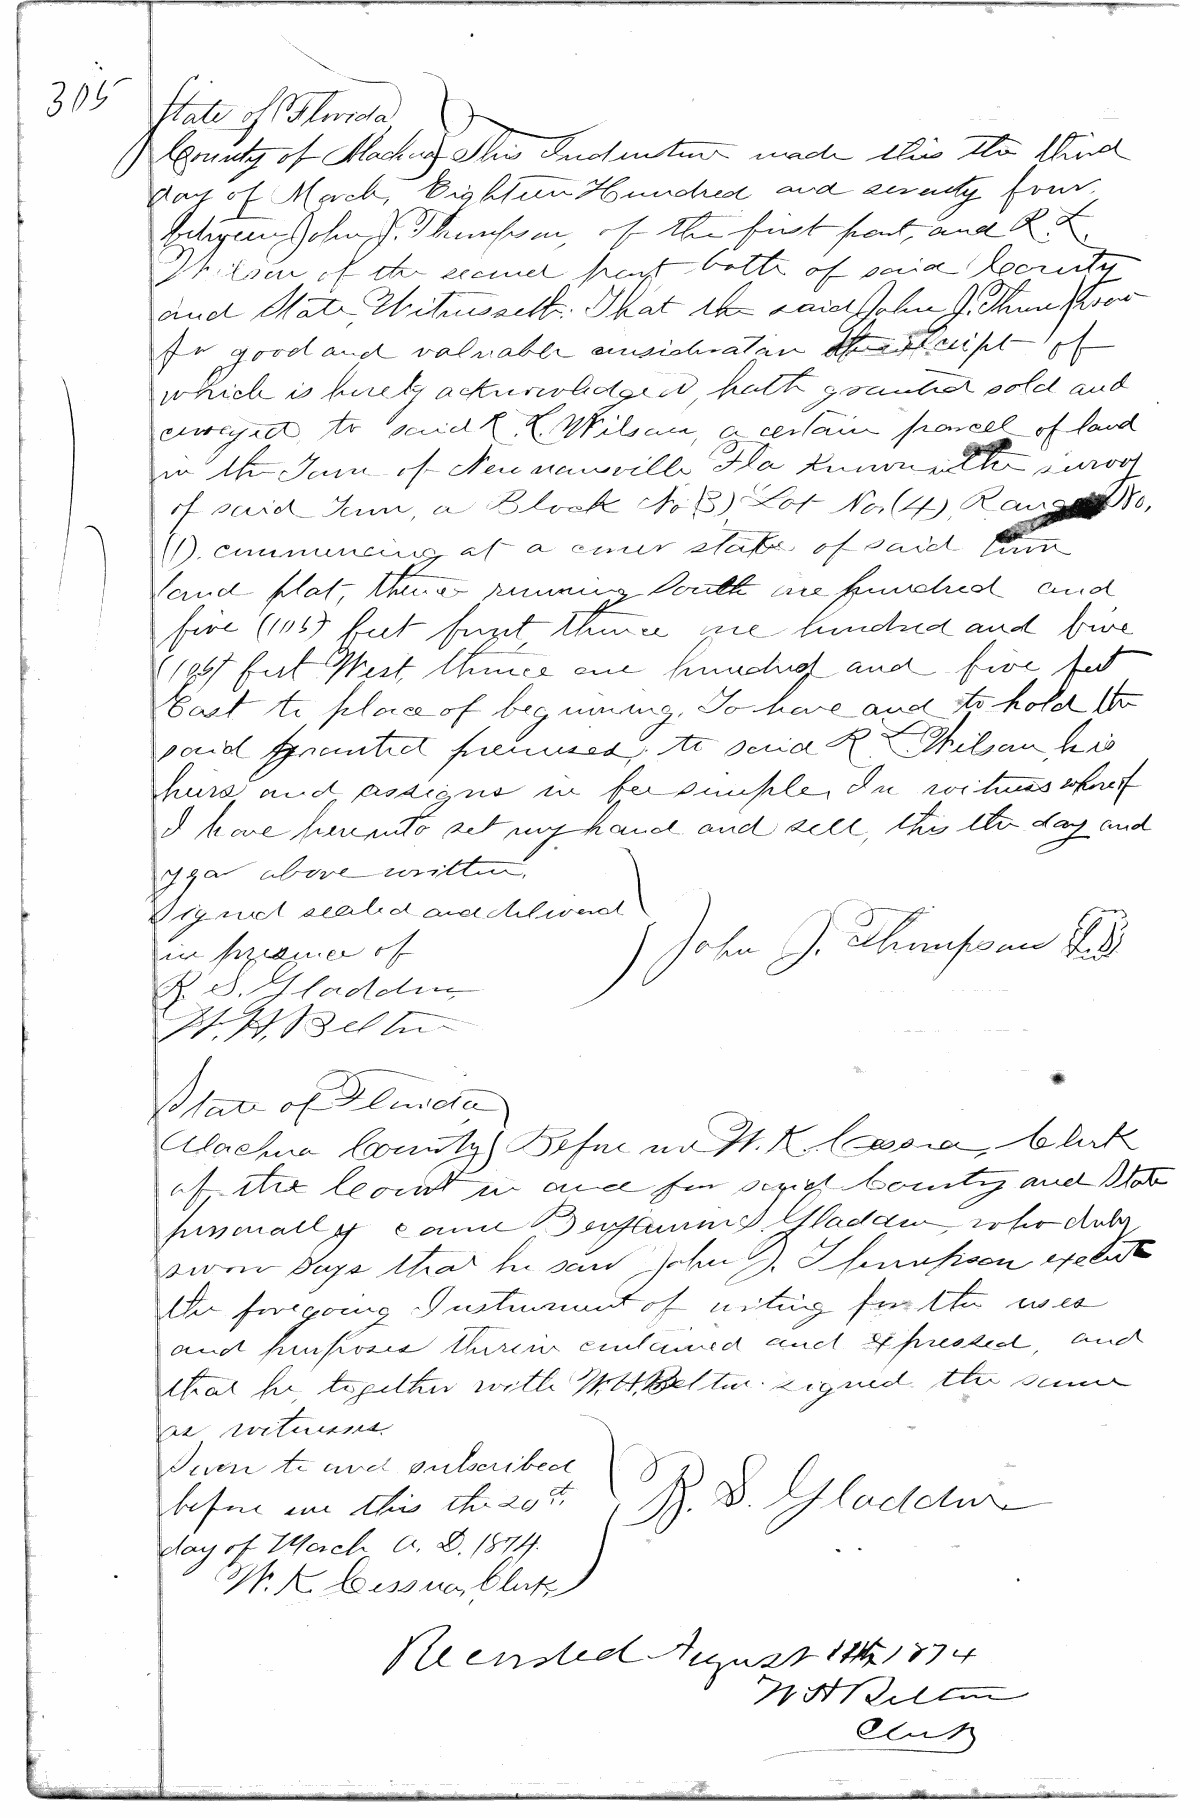 305
State of Florida
County of Alachua This Indenture made this the third
day of March, Eighteen Hundred and seventy four,
between John J. Thompson, of the first part, and R. L.
Wilson of the second part both of said County
and State, Witnesseth: That the said John J. Thompson
for good and valuable consideration the receipt of
which is hereby acknowledged, hath granted sold and
conveyed to said R. L. Wilson, a certain parcel of land
in the Town of Newnansville Fla known in the survey
of said Town, a Block No (3) Lot No. (4), Range No.
(1). commencing at a corner stake of said town
land plat, thence running South one hundred and
five (105) feet front, thence one hundred and five
(105) feet West, thence one hundred and five feet
East to place of beginning. To have and to hold the
said granted premises, to said R. L. Wilson, his
heirs and assigns in fee simple. In witness whereof
I have hereunto set my hand and sell, this the day and
year above written.
Signed sealed and delivered
in presence of
John J. Thompson L.S.
B. S. Gladden
W. H. Belton
State of Florida
Alachua County Before me W. K. Cessna, Clerk
of the Court in and for said County and State
personally came Benjamin S. Gladden, who duly
sworn says that he saw John J. Thompson execute
the foregoing Instrument of writing for the uses
and purposes therein contained and expressed, and
that he, together with W. H. Belton signed the same
as witnesses.
Sworn to and subscribed
before me this the 20th.
B. S. Gladden
day of March A. D. 1874.
W. K. Cessna, Clerk,
Recorded August 1874
W H Belton
Clerk